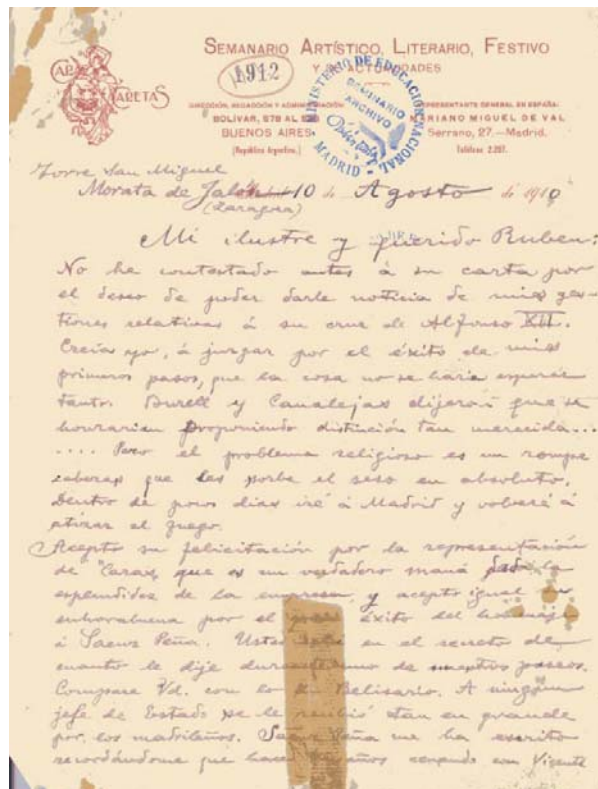 SEMANARIO ARTÍSTICO, LITERARIO, FESTIVO
Y DE ACTUALIDADES
CARAS Y CARETAS
1912
MINISTERIO DE EDUCACION NACIONAL
SEMINARIO
ARCHIVO
MADRID
DIRECCIÓN, REDACCIÓN Y ADMINISTRACIÓN
BOLIVAR, 578 AL
BUENOS AIRES
(República Argentina.)
REPRESENTANTE GENERAL EN ESPAÑA:
MARIANO MIGUEL DE VAL
Serrano, 27.—Madrid.
Teléfono 2.287.
Torre San Miguel
Morata de Jalón 10 de Agosto de 1910
(Zaragoza)
Mi ilustre y querido Ruben:
No he contestado antes á su carta por
el deseo de poder darle noticia de mis ges-
tiones relativas á su cruz de Alfonso XII.
Creía yo, á juzgar por el éxito de mis
primeros pasos, que la cosa no se haría esperar
tanto. Burell y Canalejas dijeron que se
honrarían proponiendo distinción tan merecida...
.... Pero el problema religioso es un rompe
cabezas que les sorbe el seso en absoluto.
Dentro de pocos dias iré á Madrid y volveré á
atizar el fuego.
Acepto su felicitación por la representación
de "Caras, que es un verdadero maná la
esplendidez de la empresa, y acepto igual
enhorabuena por el éxito del homenaje
á Saenz Peña. Usted en el secreto de
cuanto le dije uno de nuestros paseos.
Compare Vd. con lo Belisario. A ningún
jefe de Estado se le recibió tan en grande
por los madrileños. Saenz Peña me ha escrito
recordándome que hace años cenando con Vicente